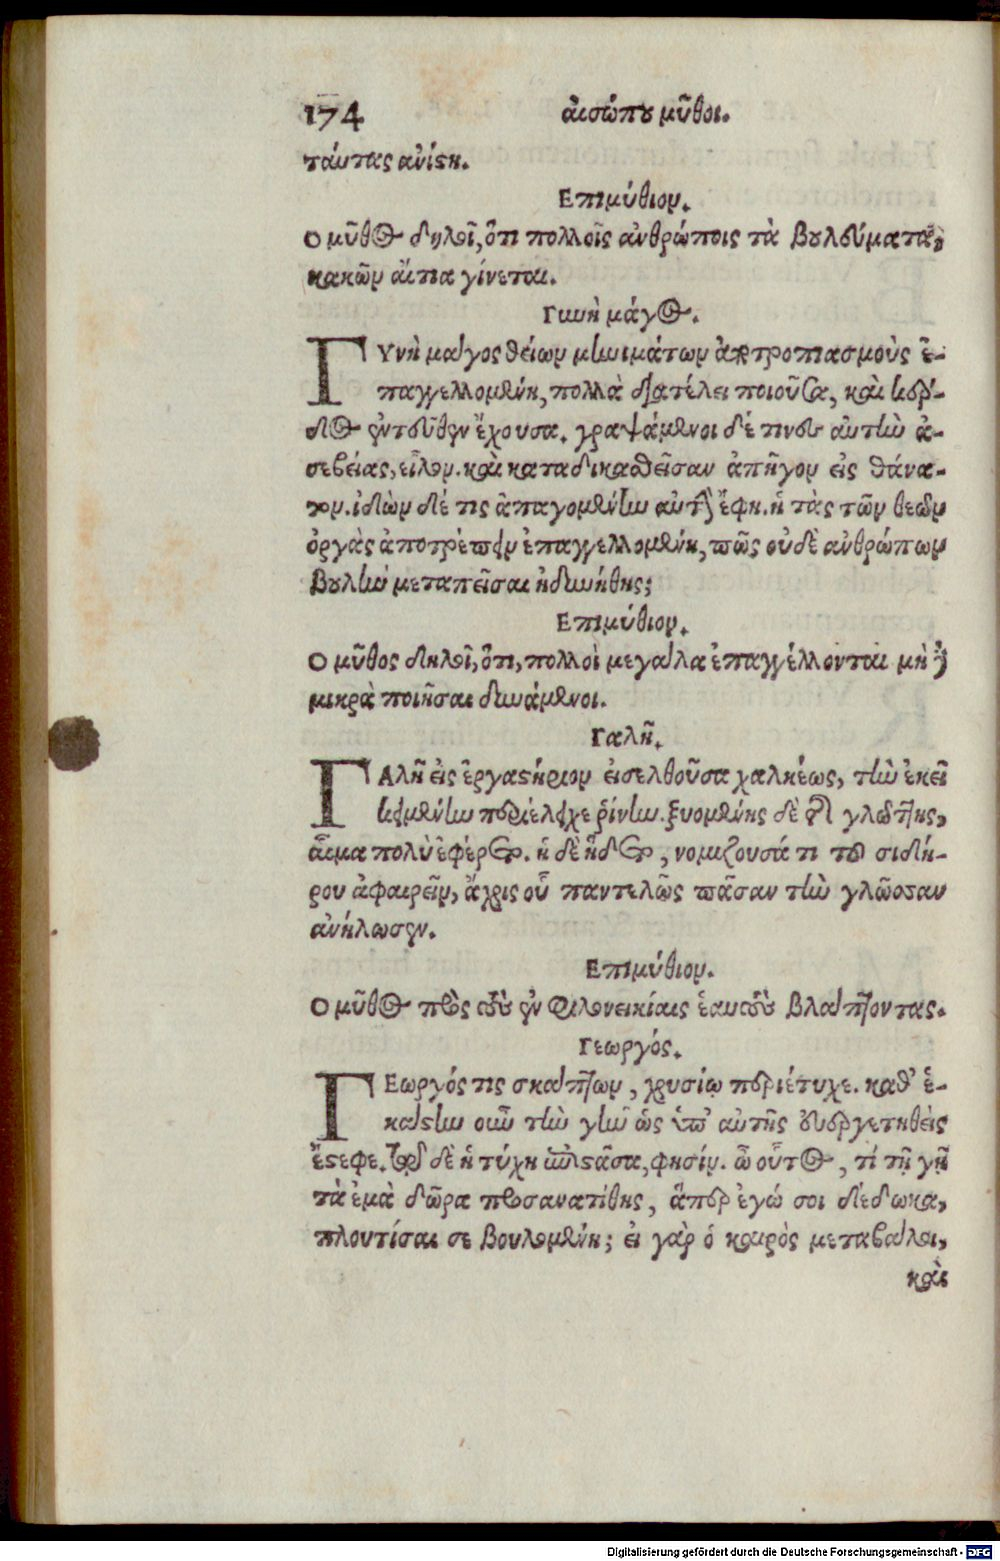 174 αἰσώπου μῦθοι.
ταύτας ἀνίστη.
Επιμύθιον.
Ο μῦθος δηλοῖ, ὅτι πολλοῖς ἀνθρώποις τὰ βουλεύματα,
κακῶν αἴτια γίνεται.
Γυνὴ μάγος.
ΓΥνὴ μάγος θείων μηνιμάτων ἀποτροπιασμοὺς ἐ-
παγγελλομένη, πολλὰ διατέλει ποιοῦσα, καὶ κέρ-
δος ἐντεῦθεν ἔχουσα. γραψάμενοι δέ τινες αὐτὴν ἀ-
σεβείας, εἷλον. καὶ καταδικασθεῖσαν ἀπῆγον εἰς θάνα-
τον. ἰδὼν δέ τις ἀπαγομένην αὐτὴν ἔφη. ἡ τὰς τῶν θεῶν
ὀργὰς ἀποτρέπειν ἐπαγγελλομένη, πῶς οὐδὲ ἀνθρώπων
βουλὴν μεταπεῖσαι ἠδυνήθης;
Επιμύθιον.
Ο μῦθος δηλοῖ, ὅτι, πολλοὶ μεγάλα ἐπαγγέλλονται μὴ δὲ
μικρὰ ποιῆσαι δυνάμενοι.
Γαλῆ.
ΓΑλῆ εἰς ἐργαστήριον εἰσελθοῦσα χαλκέως, τὴν ἐκεῖ
κειμένην περιέλειχε ῥίνην. ξυομένης δὲ τῆς γλώττης,
αἷμα πολὺ ἐφέρετο. ἡ δὲ ἥδετο, νομίζουσά τι τοῦ σιδή-
ρου ἀφαιρεῖν, ἄχρις οὗ παντελῶς πᾶσαν τὴν γλῶσσαν
ἀνήλωσεν.
Επιμύθιον.
Ο μῦθος πρὸς τοὺς ἐν φιλονεικίαις ἑαυτοὺς βλάπτοντας.
Γεωργός.
ΓΕωργός τις σκάπτων, χρυσίῳ περιέτυχε. καθ' ἑ-
κάστην οὖν τὴν γῆν ὡς ὑπ' αὐτῆς εὐεργετηθεὶς
ἔστεφε. τῷ δὲ ἡ τύχη ἐπιστᾶσα, φησίν. ὦ οὗτος, τί τῇ γῇ
τὰ ἐμὰ δῶρα προσανατίθης, ἅπερ ἐγώ σοι δέδωκα,
πλουτίσαι σε βουλομένη; εἰ γὰρ ὁ καιρὸς μεταβάλοι,
καὶ
Digitalisierung gefördert durch die Deutsche Forschungsgemeinschaft - DFG